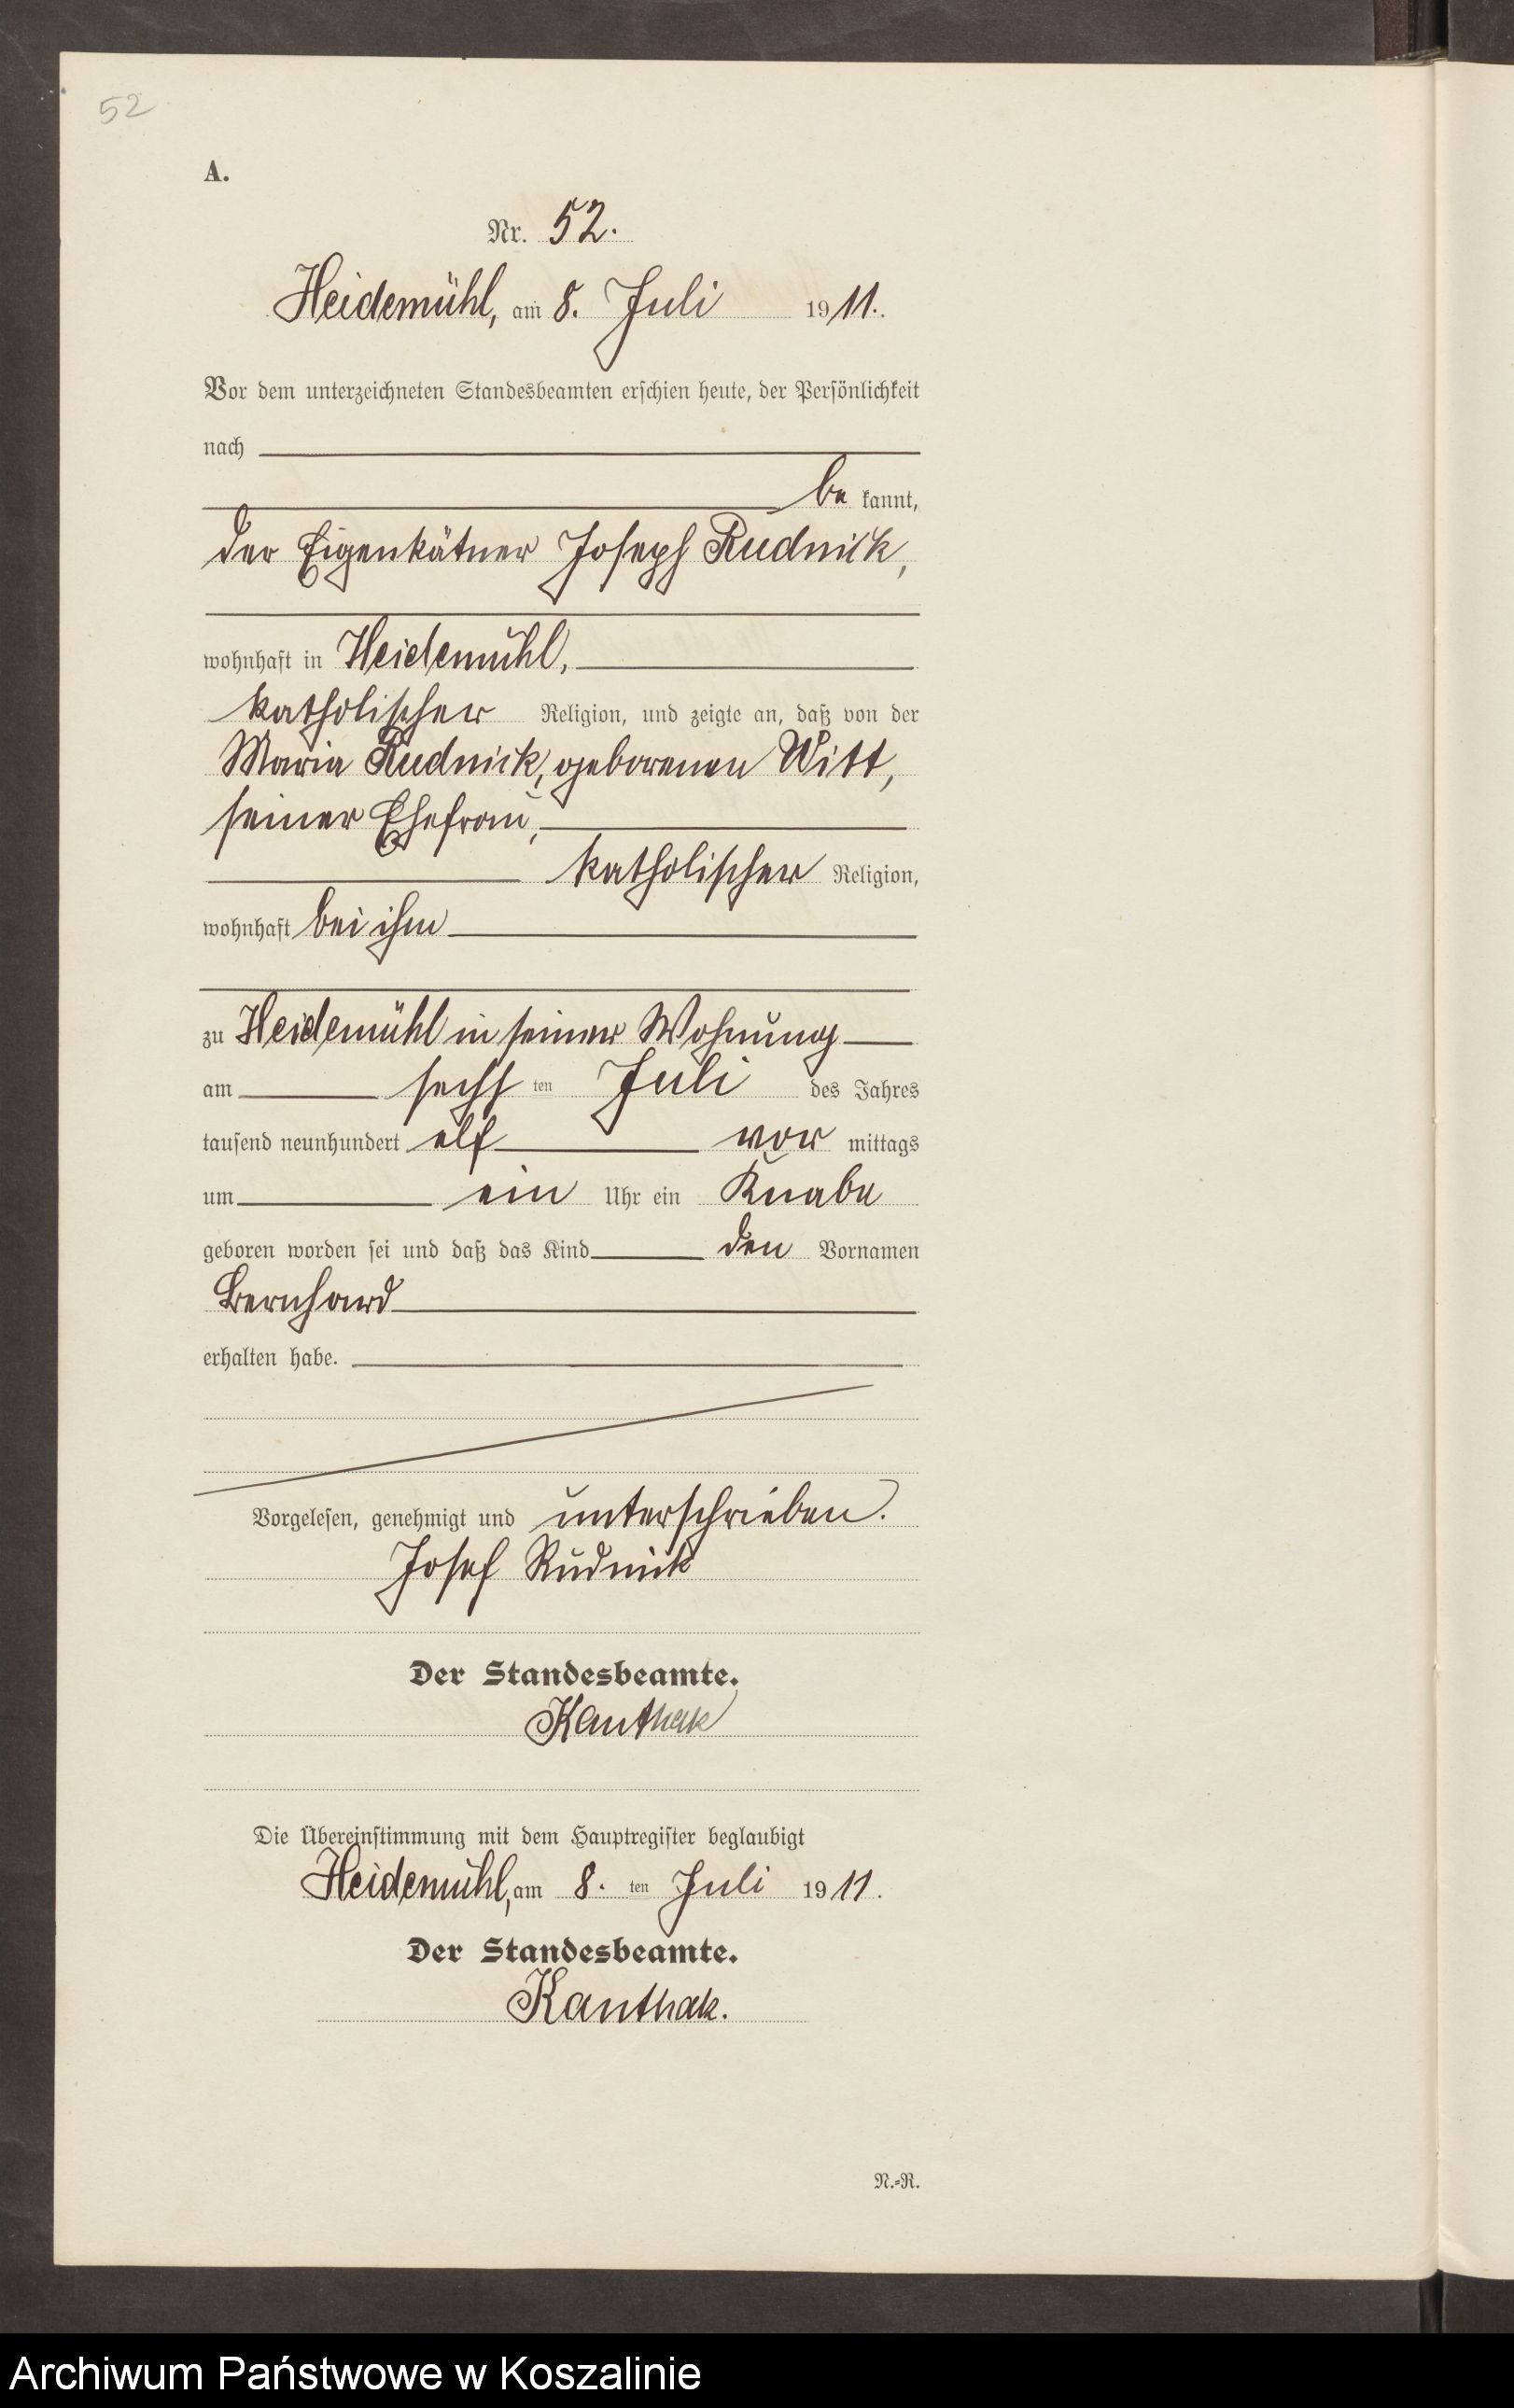 52
A.
Nr. 52.
Heidemühl, am 8. Juli 1911.
Vor dem unterzeichneten Standesbeamten erschien heute, der Persönlichkeit
nach
be kannt,
der Eigenkätner Joseph Rudnick,
wohnhaft in Heidemühl,
katholischer Religion, und zeigte an, daß von der
Maria Rudnick, geborenen Witt,
seiner Ehefrau,
katholischer Religion,
wohnhaft bei ihm
zu Heidemühl in seiner Wohnung
am sechs ten Juli des Jahres
tausend neunhundert elf vor mittags
um ein Uhr ein Knabe
geboren worden sei und daß das Kind den Vornamen
Bernhard
erhalten habe.
Vorgelesen, genehmigt und unterschrieben.
Josef Rudnick
Der Standesbeamte.
Kanthak
Die Übereinstimmung mit dem Hauptregister beglaubigt
Heidemühl, am 8. ten Juli 1911.
Der Standesbeamte.
Kanthak.
N.=R.
Archiwum Państwowe w Koszalinie